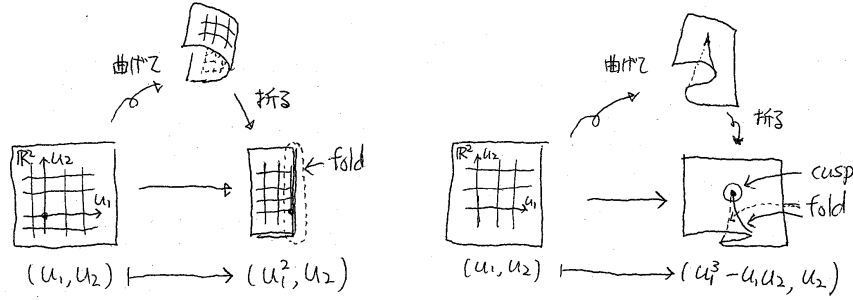 曲げて
折る
ℝ² u₂
u₁
fold
(u₁, u₂) ⟼ (u₁², u₂)
曲げて
折る
ℝ² u₂
u₁
cusp
fold
(u₁, u₂) ⟼ (u₁³ - u₁u₂, u₂)